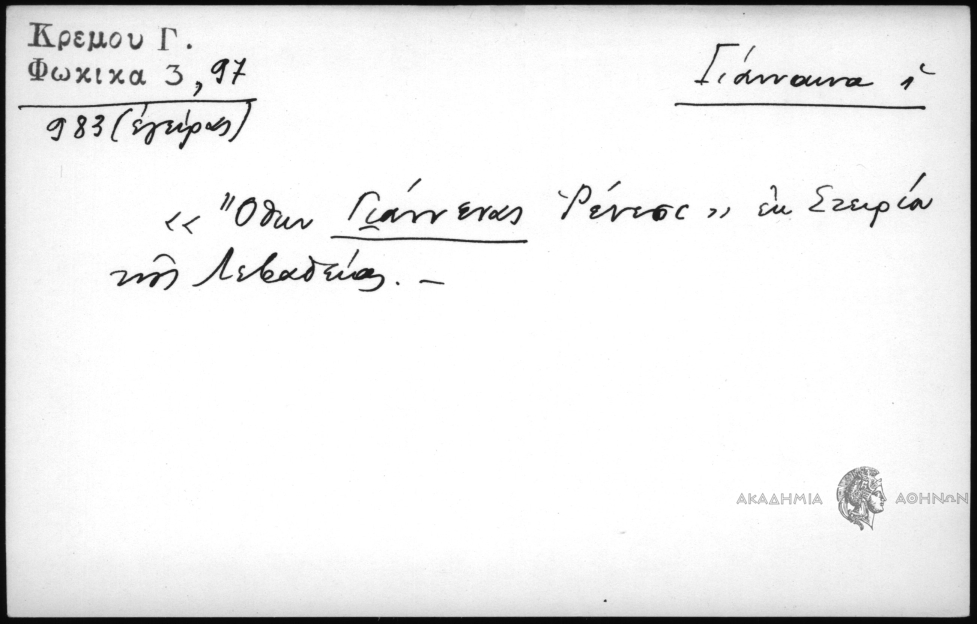 Κρεμου Γ.
Φωκικα 3, 97
983 (έγείρας)
Γιάνναινα ἡ
«Ὅθων Γιάνν̲ενας Ῥένεσι» ἐκ Στειρίου
τῆς Λεβαδείας. –
ΑΚΑΔΗΜΙΑ ΑΘΗΝΩΝ